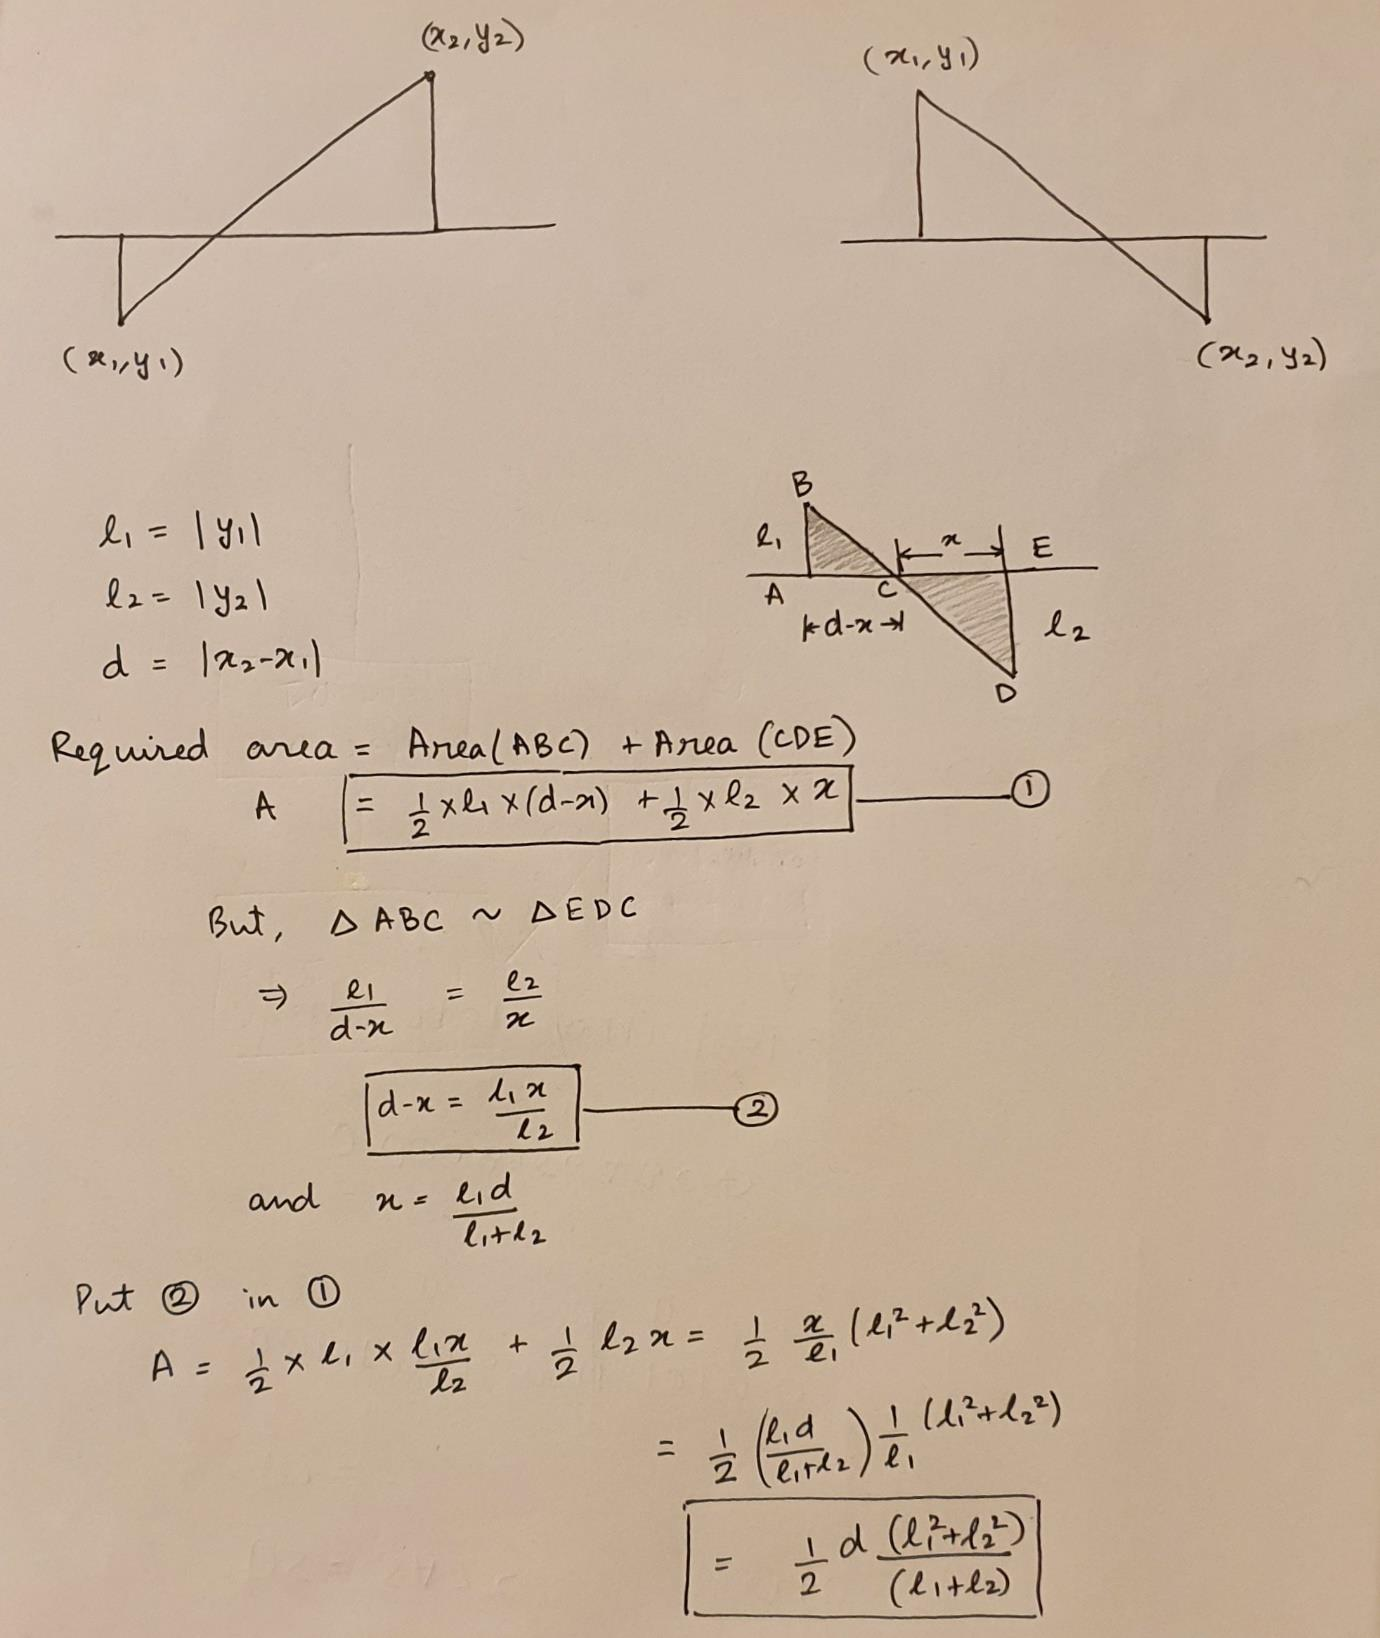 (x₂, y₂)
(x₁, y₁)
(x₁, y₁)
(x₂, y₂)
l₁ = |y₁|
l₂ = |y₂|
d = |x₂-x₁|
B
l₁
x
E
A
C
d-x
l₂
D
Required area = Area(ABC) + Area (CDE)
A = 1/2 × l₁ × (d-x) + 1/2 × l₂ × x ①
But, Δ ABC ~ Δ EDC
⇒ l₁/(d-x) = l₂/x
d-x = l₁x/l₂ ②
and x = l₁d/(l₁+l₂)
Put ② in ①
A = 1/2 × l₁ × l₁x/l₂ + 1/2 l₂x = 1/2 x/l₁ (l₁²+l₂²)
= 1/2 (l₁d/(l₁+l₂)) 1/l₁ (l₁²+l₂²)
= 1/2 d (l₁²+l₂²)/(l₁+l₂)